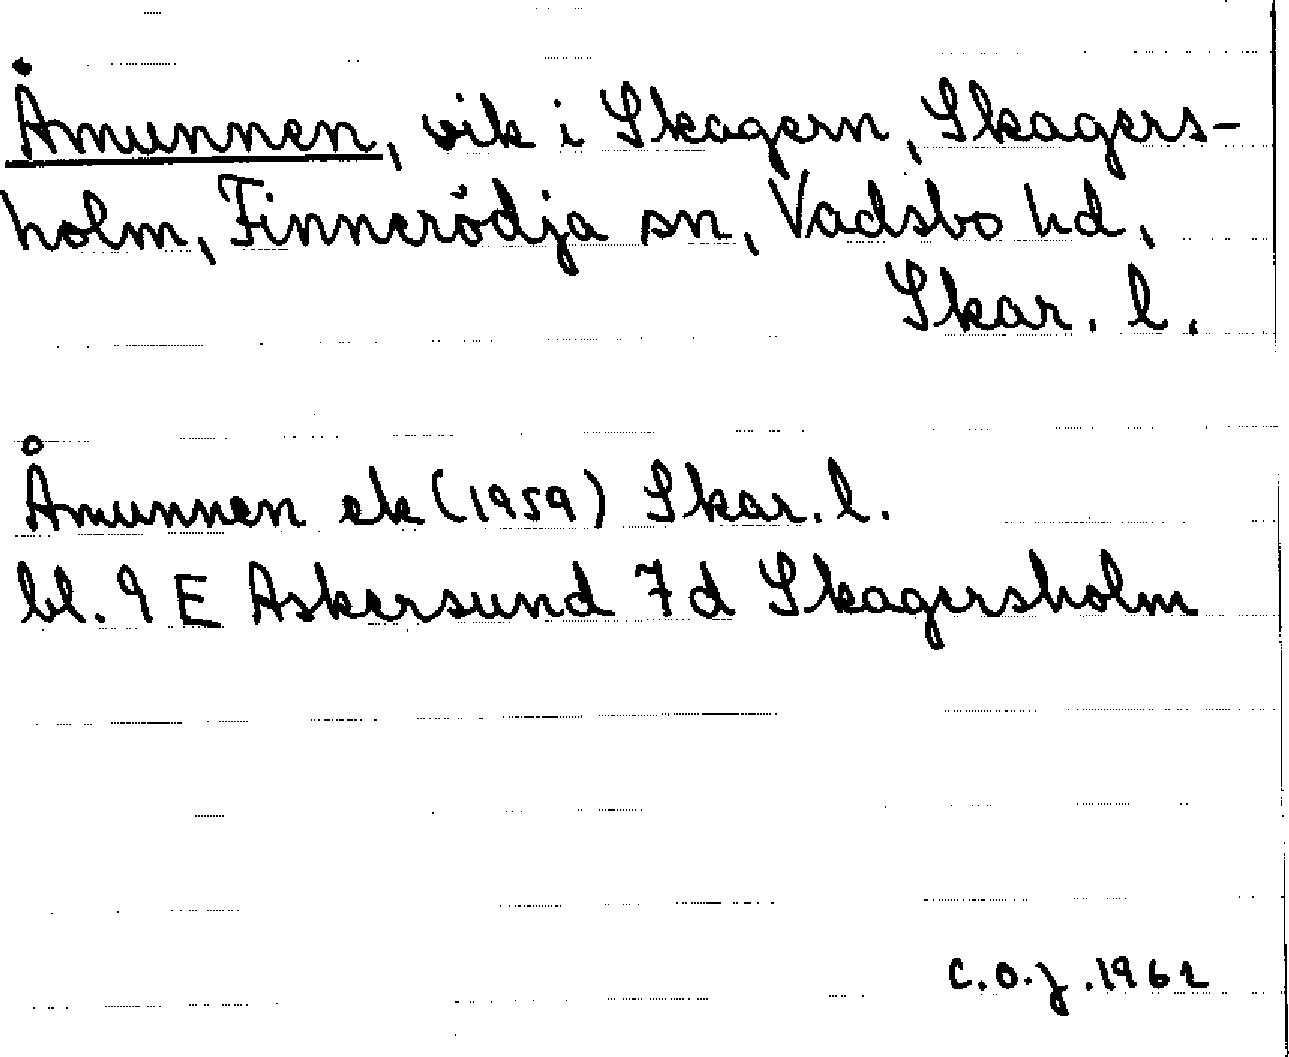 Åmunnen, vik i Skagern, Skagers-
holm, Finnerödja sn, Vadsbo hd,
Skar. l.
Åmunnen ek (1959) Skar. l.
bl. 9 E Askersund 7 d Skagersholm
C.O.J. 1962